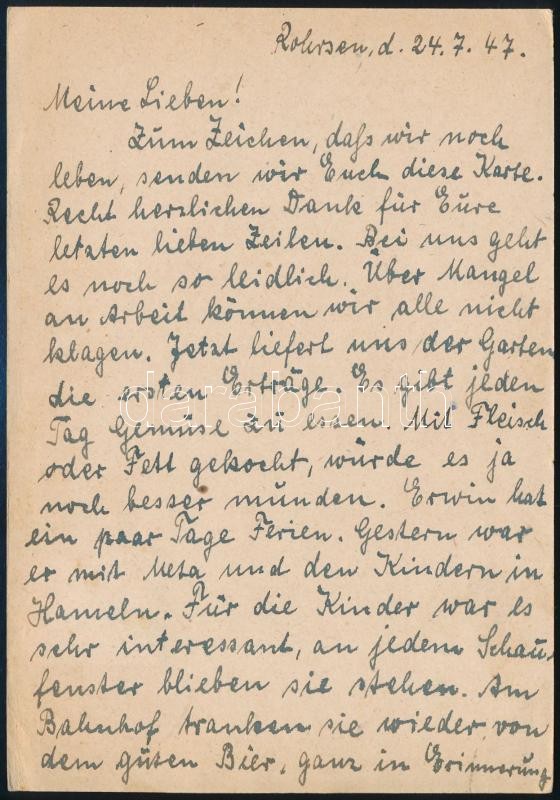 Rohrsen, d. 24.7.47.
Meine Lieben!
Zum Zeichen, daß wir noch
leben, senden wir Euch diese Karte.
Recht herzlichen Dank für Eure
letzten lieben Zeilen. Bei uns geht
es noch so leidlich. Über Mangel
an Arbeit können wir alle nicht
klagen. Jetzt liefert uns der Garten
die ersten Erträge. Es gibt jeden
Tag Gemüse zu essen. Mit Fleisch
oder Fett gekocht, würde es ja
noch besser munden. Erwin hat
ein paar Tage Ferien. Gestern war
er mit Meta und den Kindern in
Hameln. Für die Kinder war es
sehr interessant, an jedem Schau-
fenster blieben sie stehen. Am
Bahnhof tranken sie wieder von
dem guten Bier, ganz in Erinnerung
darabanth